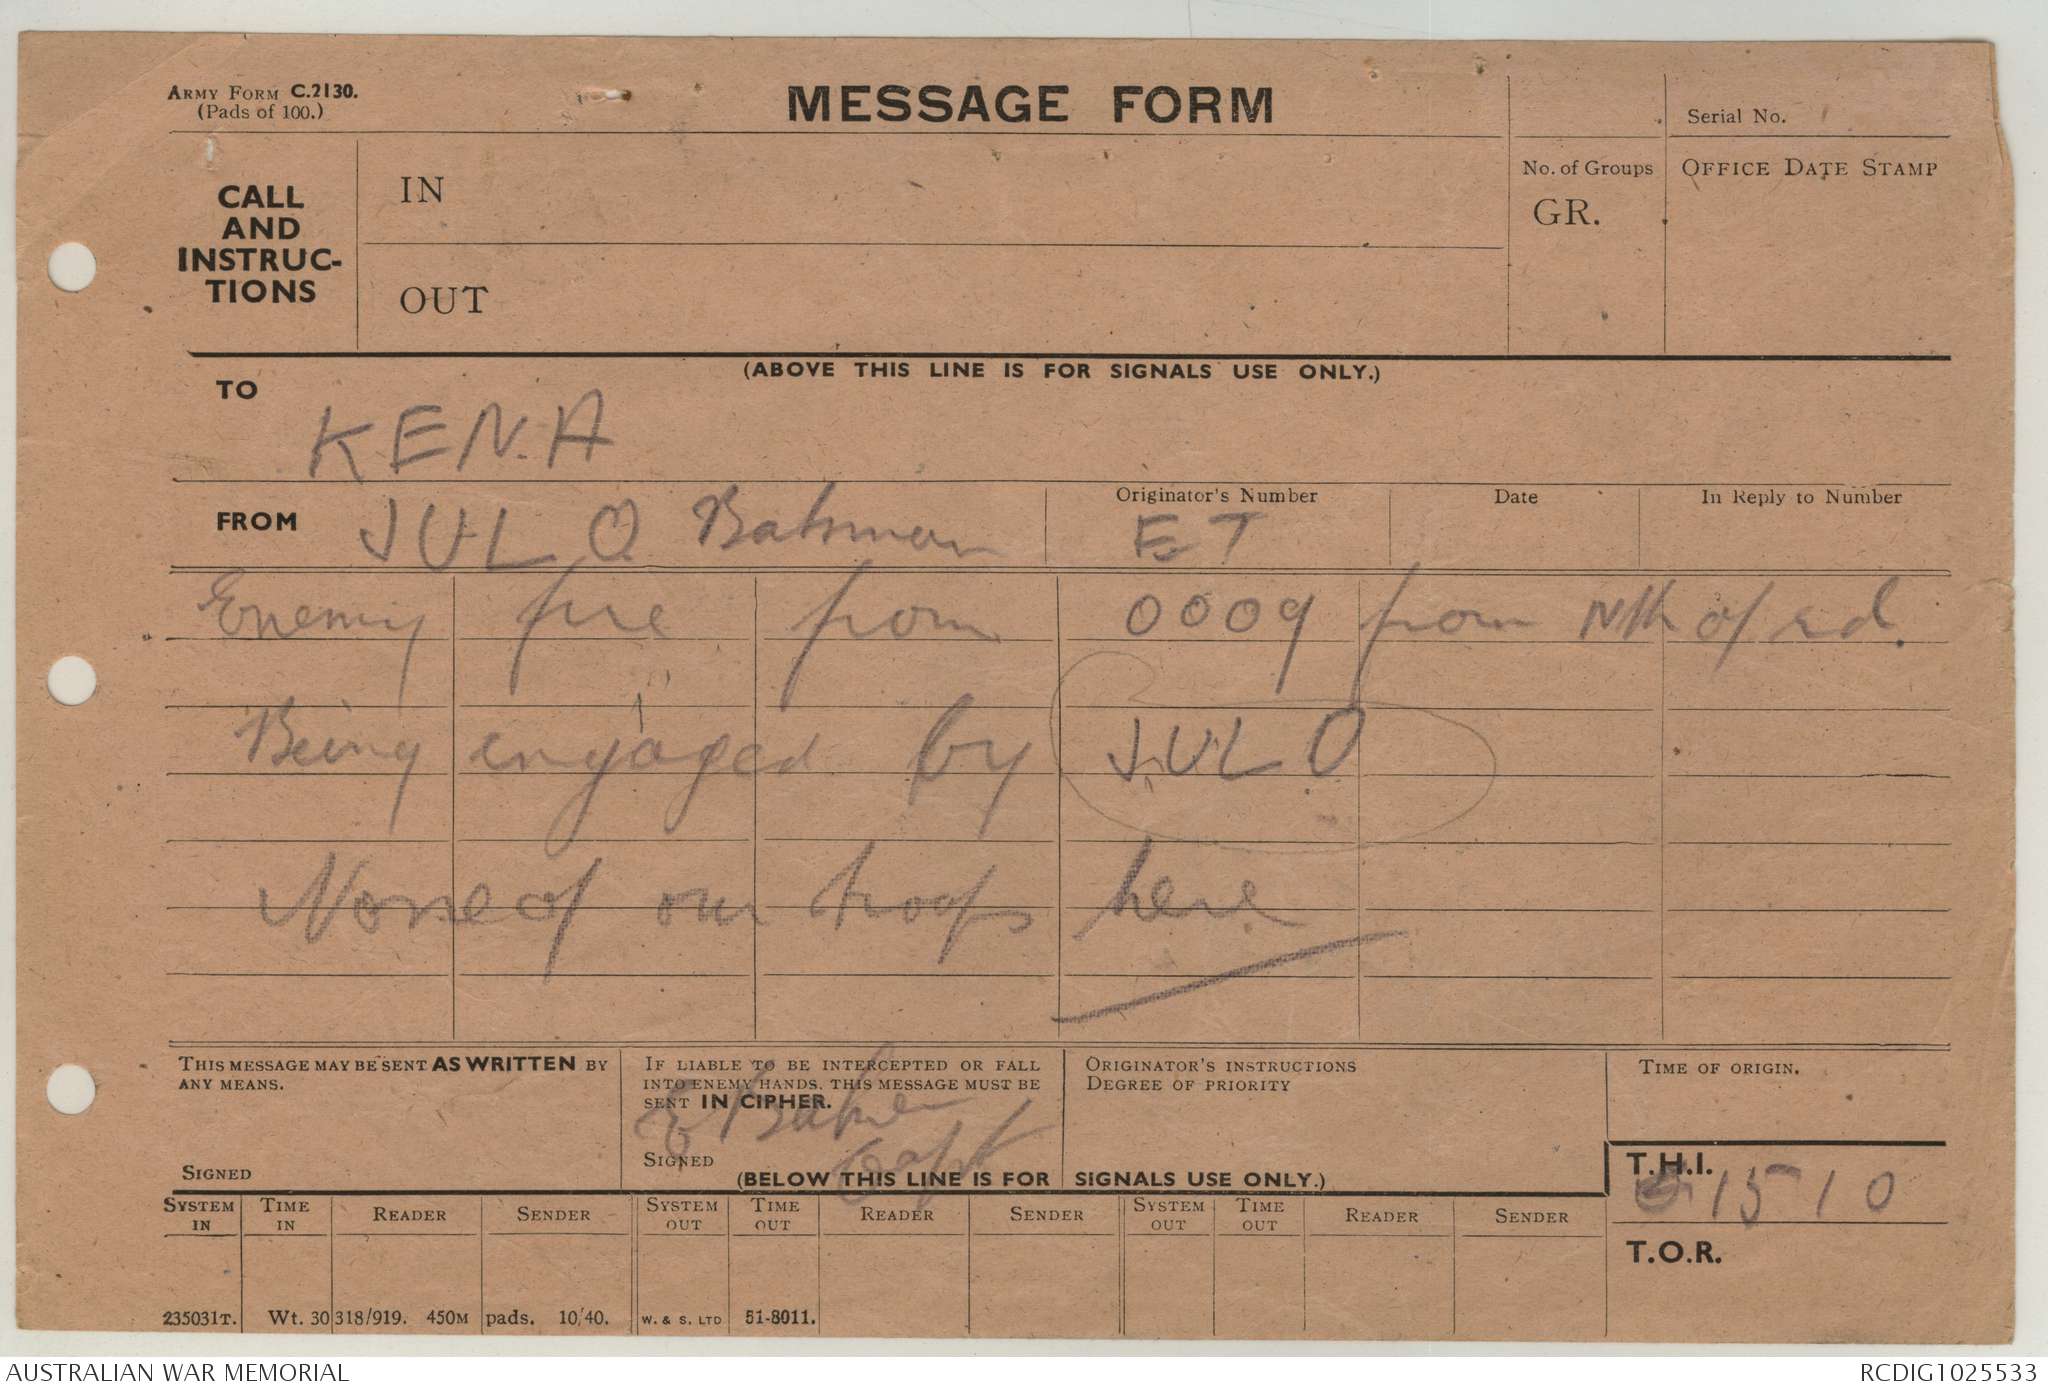 ARMY FORM C.2130.
(Pads of 100.)
MESSAGE FORM
Serial No.
CALL
AND
INSTRUC-
TIONS
IN
OUT
No. of Groups
GR.
OFFICE DATE STAMP
(ABOVE THIS LINE IS FOR SIGNALS USE ONLY.)
TO
KENA
FROM
JULO
Originator's Number
ET
Date
In Reply to Number
Enemy fire from 0009 from Nth of rd.
Being engaged by JULO
None of our troops here
THIS MESSAGE MAY BE SENT AS WRITTEN BY
ANY MEANS.
SIGNED
IF LIABLE TO BE INTERCEPTED OR FALL
INTO ENEMY HANDS, THIS MESSAGE MUST BE
SENT IN CIPHER.
Capt
SIGNED
ORIGINATOR'S INSTRUCTIONS
DEGREE OF PRIORITY
TIME OF ORIGIN.
(BELOW THIS LINE IS FOR SIGNALS USE ONLY.)
T.H.I.
1510
T.O.R.
SYSTEM IN
TIME IN
READER
SENDER
SYSTEM OUT
TIME OUT
READER
SENDER
SYSTEM OUT
TIME OUT
READER
SENDER
235031T. Wt. 30318/919. 450M pads. 10/40. W. & S. LTD 51-8011.
AUSTRALIAN WAR MEMORIAL
RCDIG1025533